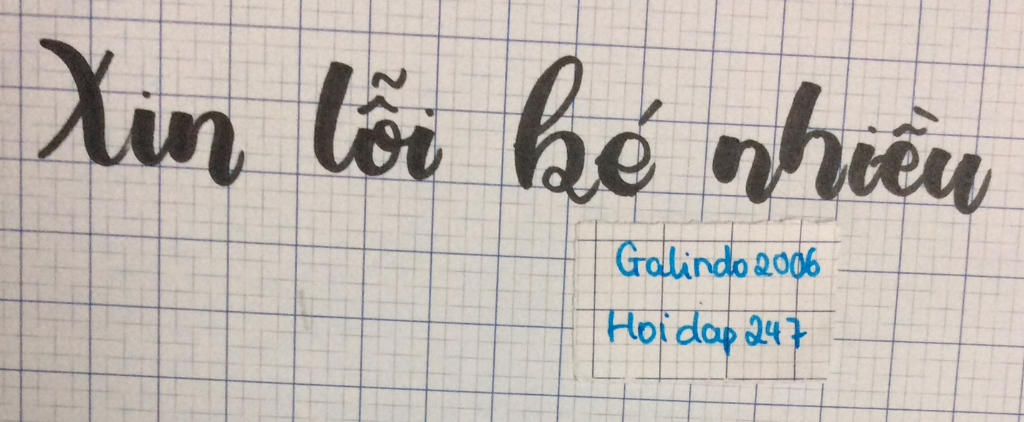 Xin lỗi bé nhiều
Galindo2006
Hoidap247